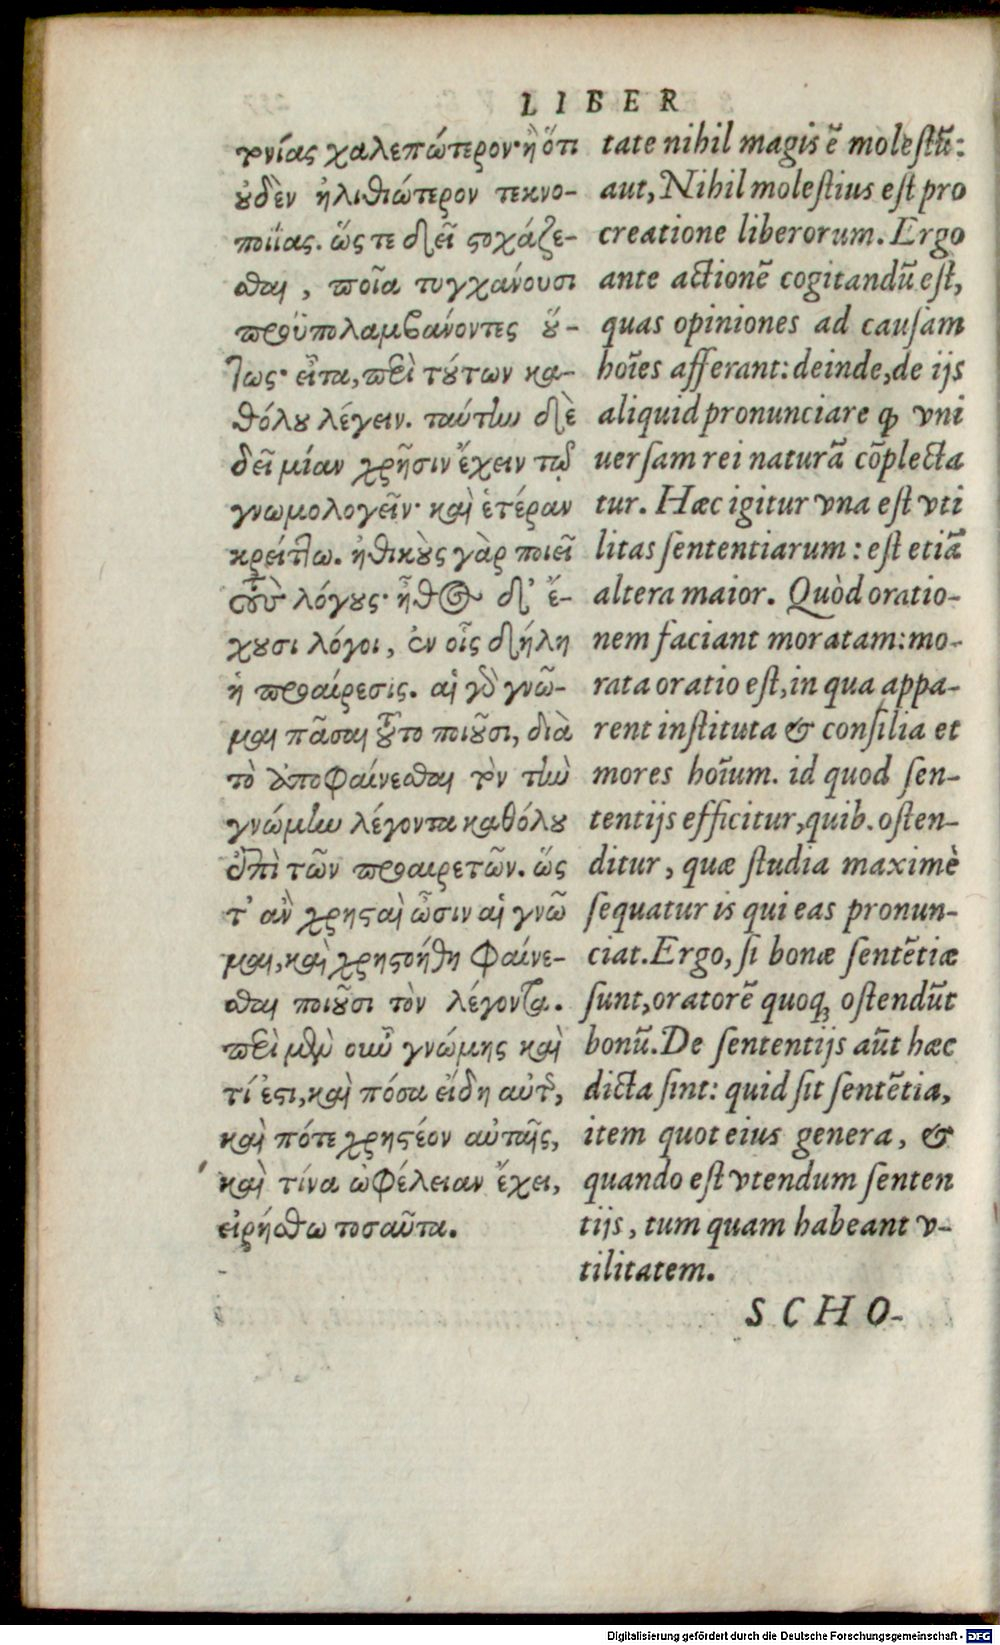 LIBER
τονίας χαλεπώτερον· ἢ ὅτι
οὐδὲν ἠλιθιώτερον τεκνο-
ποιΐας. ὥς τε δεῖ στοχάζε-
σθαι, ποῖα τυγχάνουσι
προϋπολαμβάνοντες οὕ-
τως· εἶτα, περὶ τούτων κα-
θόλου λέγειν. ταύτην δὲ
δεῖ μίαν χρῆσιν ἔχειν τῷ
γνωμολογεῖν· καὶ ἑτέραν
κρείττω. ἠθικοὺς γὰρ ποιεῖ
τοὺς λόγους· ἦθος δ' ἔ-
χουσι λόγοι, ἐν οἷς δήλη
ἡ προαίρεσις. αἱ γὸ γνῶ-
μαι πᾶσαι τοῦτο ποιοῦσι, διὰ
τὸ ἀποφαίνεσθαι τὸν τὴν
γνώμην λέγοντα καθόλου
ἐπὶ τῶν προαιρετῶν. ὥς
τ' ἂν χρησταὶ ὦσιν αἱ γνῶ
μαι, καὶ χρηστοήθη φαίνε-
σθαι ποιοῦσι τὸν λέγοντα.
περὶ μὲν οὖν γνώμης καὶ
τί ἐστι, καὶ πόσα εἴδη αὐτῆς,
καὶ πότε χρηστέον αὐταῖς,
καὶ τίνα ὠφέλειαν ἔχει,
εἰρήσθω τοσαῦτα.
tate nihil magis ē molestū:
aut, Nihil molestius est pro
creatione liberorum. Ergo
ante actionē cogitandū est,
quas opiniones ad causam
hoīes afferant: deinde, de ijs
aliquid pronunciare ꝙ vni
uersam rei naturā cōplecta
tur. Hæc igitur vna est vti
litas sententiarum: est etiā
altera maior. Quòd oratio-
nem faciant moratam: mo-
rata oratio est, in qua appa-
rent instituta & consilia et
mores hoīum. id quod sen-
tentijs efficitur, quib. osten-
ditur, quæ studia maximè
sequatur is qui eas pronun-
ciat. Ergo, si bonæ sentētiæ
sunt, oratorē quoq; ostendūt
bonū. De sententijs aūt hæc
dicta sint: quid sit sentētia,
item quot eius genera, &
quando est vtendum senten
tijs, tum quam habeant v-
tilitatem.
SCHO-
Digitalisierung gefördert durch die Deutsche Forschungsgemeinschaft - DFG